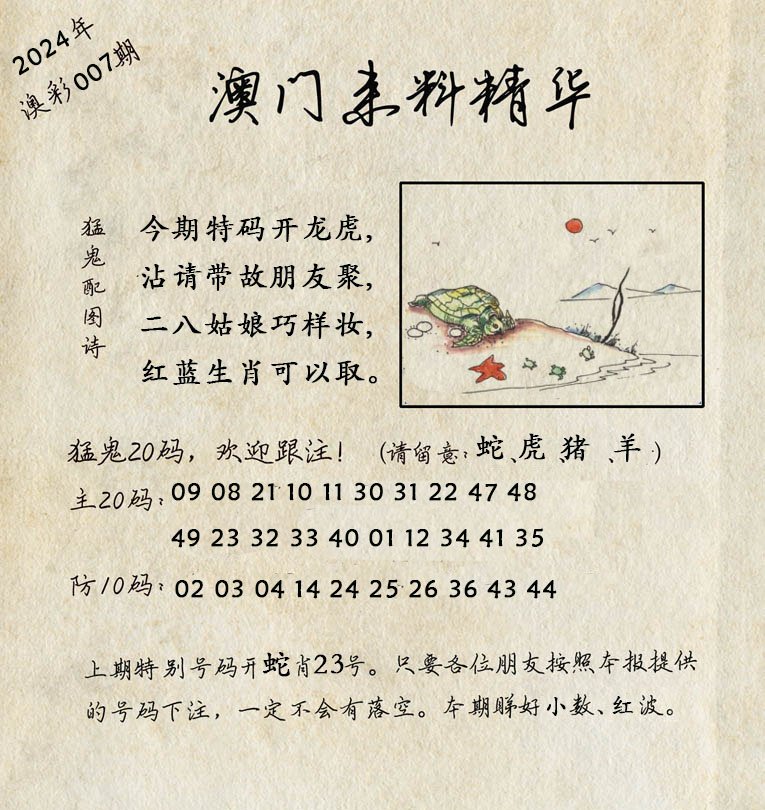 2024年
澳彩007期
澳门来料精华
猛鬼配图诗
今期特码开龙虎，
沾请带故朋友聚，
二八姑娘巧样妆，
红蓝生肖可以取。
猛鬼20码，欢迎跟注！（请留意：蛇、虎、猪、羊）
主20码：09 08 21 10 11 30 31 22 47 48
49 23 32 33 40 01 12 34 41 35
防10码：02 03 04 14 24 25 26 36 43 44
上期特别号码开蛇肖23号。只要各位朋友按照本报提供
的号码下注，一定不会有落空。本期睇好小数、红波。